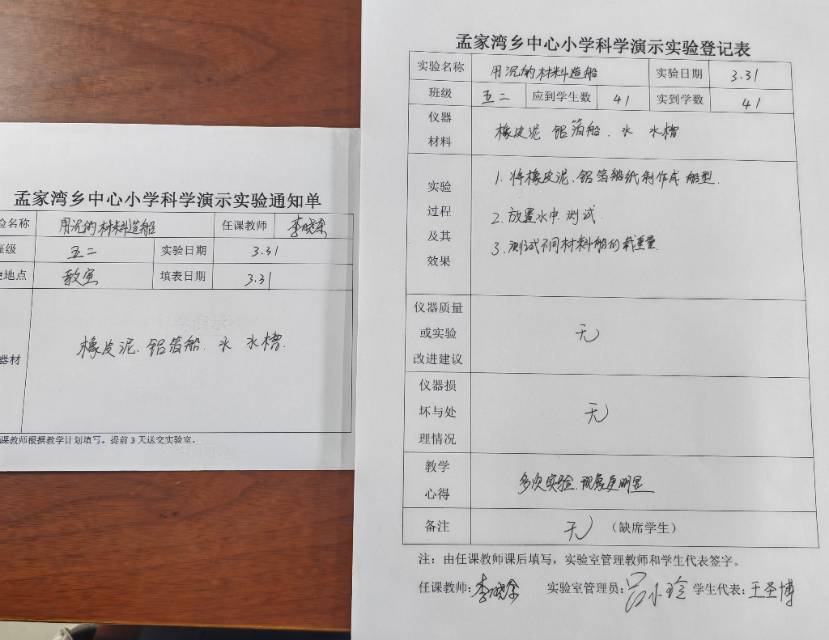 孟家湾乡中心小学科学演示实验通知单
验名称 用沉的材料造船 任课教师 李晓余
班级 五二 实验日期 3.31
地点 教室 填表日期 3.31
器材 橡皮泥、铝箔船、水 水槽.
课教师根据教学计划填写。提前3天送交实验室。
孟家湾乡中心小学科学演示实验登记表
实验名称 用沉的材料造船 实验日期 3.31
班级 五二 应到学生数 41 实到学数 41
仪器
材料 橡皮泥 铝箔船、水 水槽
实验
过程
及其
效果
1. 将橡皮泥、铝箔船纸制作成 船型.
2. 放置水中 测试.
3. 测试不同材料船的载重量
仪器质量
或实验
改进建议 无
仪器损
坏与处
理情况 无
教学
心得 多次实验.现象更明显
备注 无 (缺席学生)
注：由任课教师课后填写，实验室管理教师和学生代表签字。
任课教师：李晓余 实验室管理员：吕小玲 学生代表：王圣博